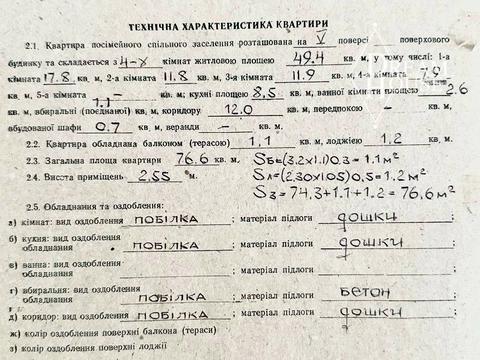 ТЕХНІЧНА ХАРАКТЕРИСТИКА КВАРТИРИ
2.1. Квартира посімейного спільного заселення розташована на V поверсі поверхового
будинку та складається з 4-х кімнат житловою площею 49.4 кв. м, у тому числі: 1-а
кімната 17.8 кв. м, 2-а кімната 11.8 кв. м, 3-я кімната 11.9 кв. м, 4-а кімната 7.9
кв. м, 5-а кімната — кв. м; кухні площею 8,5 кв. м, ванної кімнати площею 2.6
кв. м, вбиральні (поєднаної) 1.1 кв. м, коридору 12.0 кв. м, передпокою — кв. м,
вбудованої шафи 0.7 кв. м, веранди — кв. м.
2.2. Квартира обладнана балконом (терасою) 1,1 кв. м, лоджією 1,2 кв. м.
2.3. Загальна площа квартири 76,6 кв. м. Sб=(3.2х1.1)0.3=1.1м²
2.4. Висота приміщень 2.55 м. Sл=(2.30х1.05)0,5=1.2м²
Sз=74,3+1.1+1.2=76,6м²
2.5. Обладнання та оздоблення:
а) кімнат: вид оздоблення ПОБІЛКА; матеріал підлоги дошки
б) кухня: вид оздоблення
обладнання ПОБІЛКА; матеріал підлоги дошки
в) ванна: вид оздоблення
обладнання ; матеріал підлоги
г) вбиральня: вид оздоблення
обладнання ПОБІЛКА; матеріал підлоги бетон
д) коридор: вид оздоблення ПОБІЛКА; матеріал підлоги дошки
ж) колір оздоблення поверхні балкона (тераси)
з) колір оздоблення поверхні лоджії